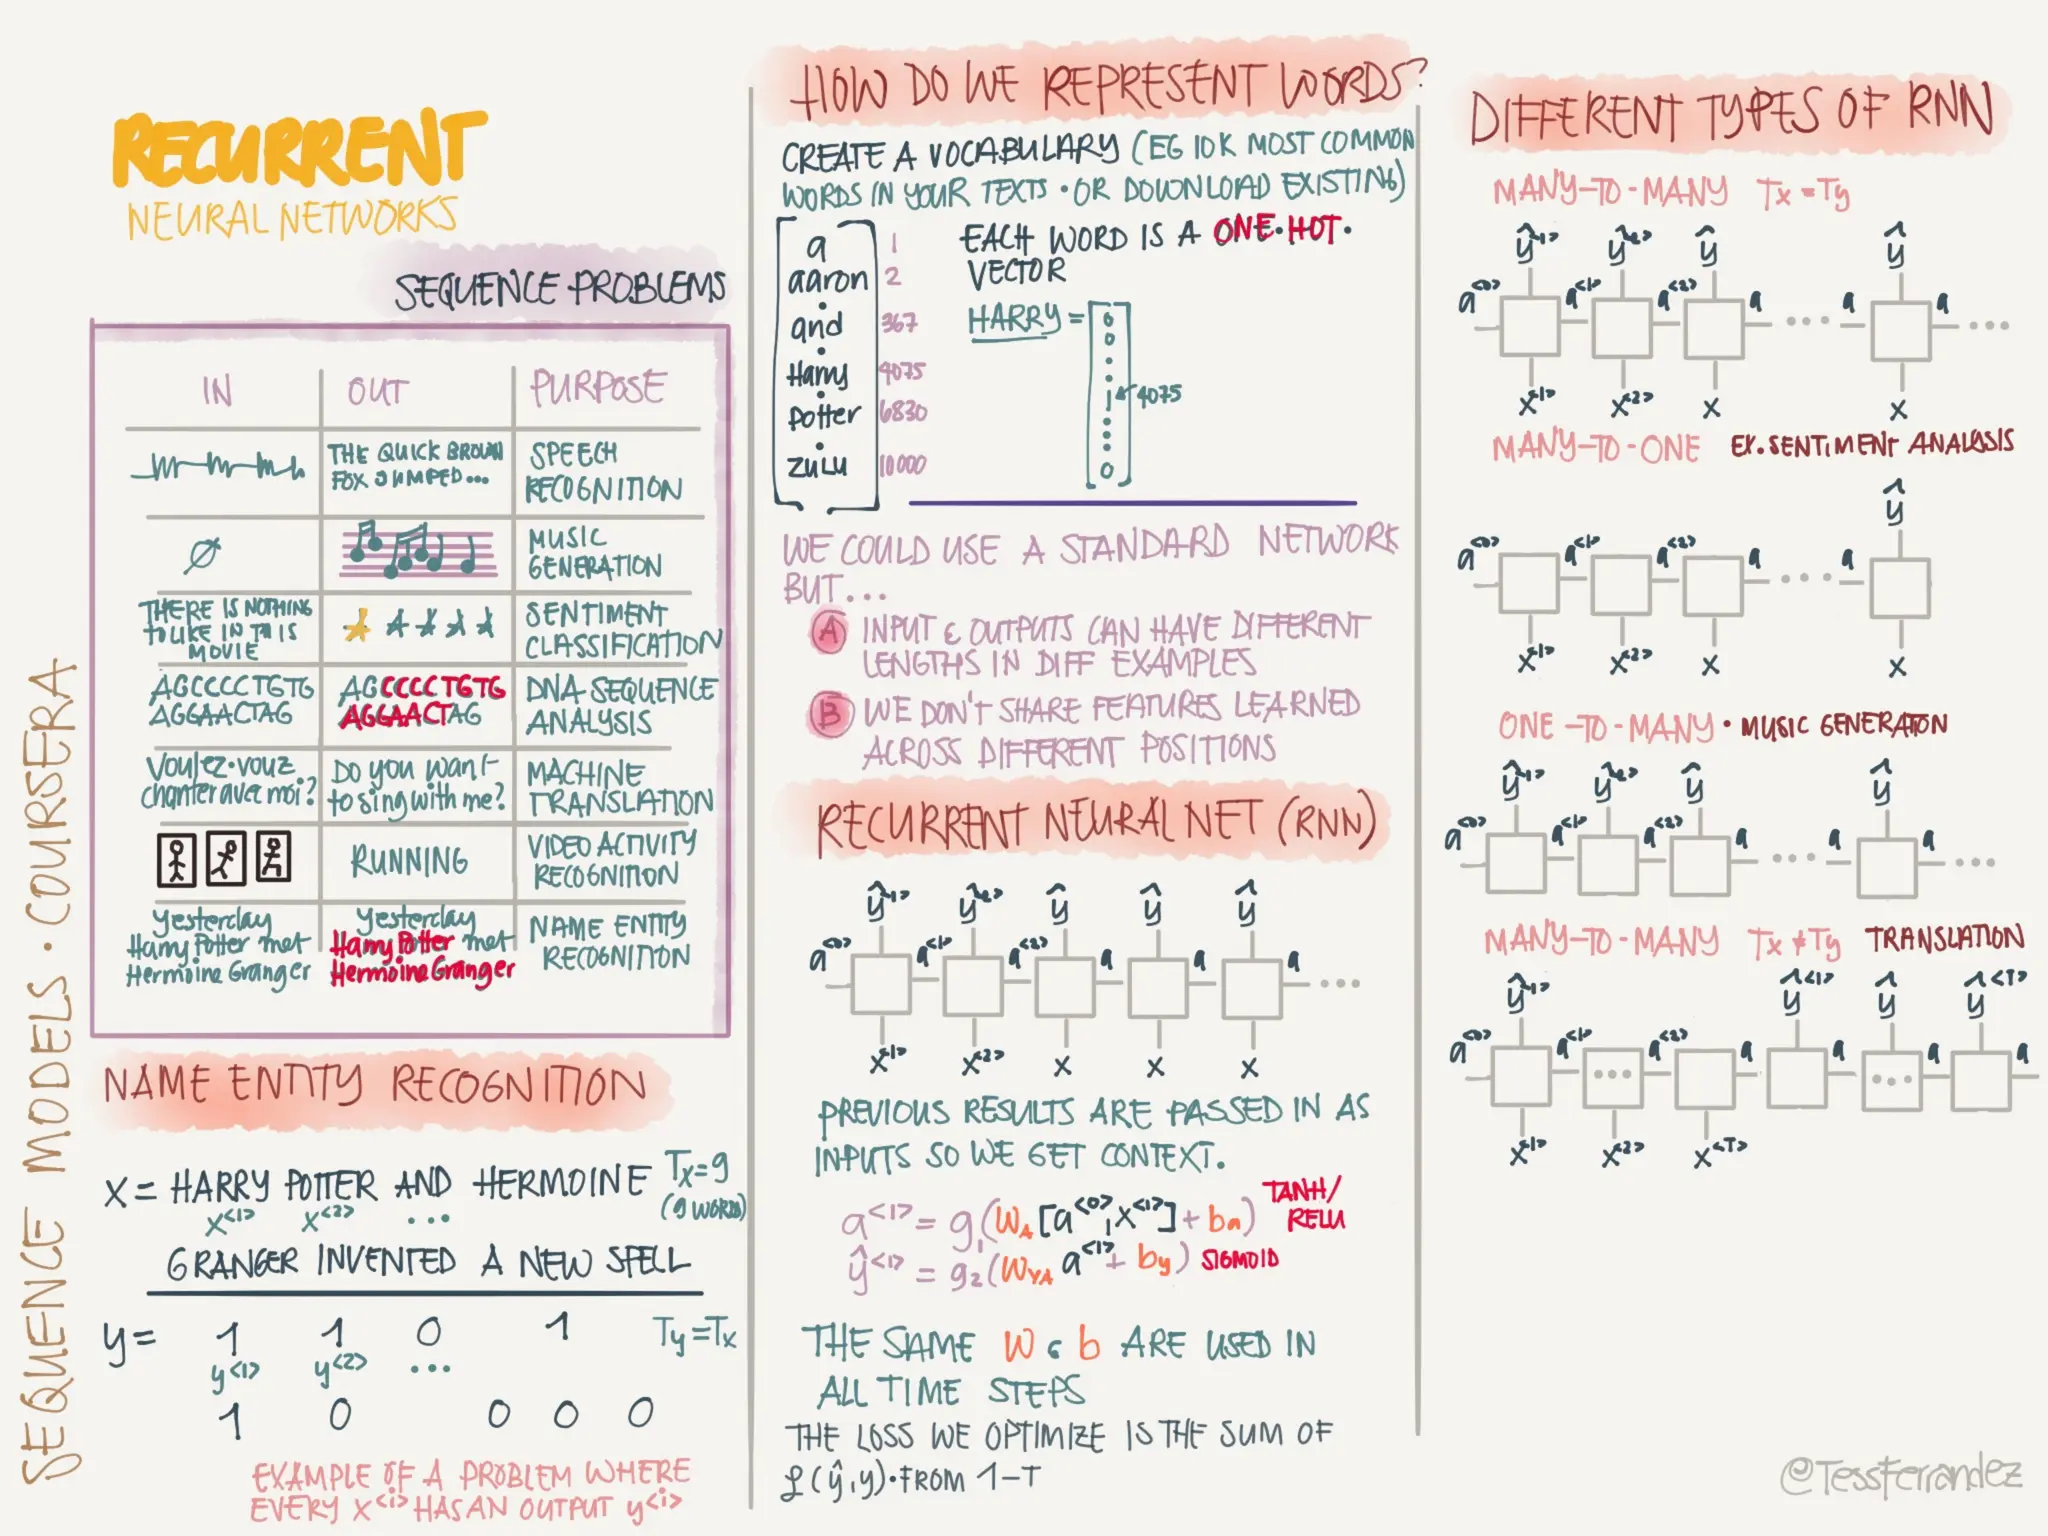 RECURRENT
NEURAL NETWORKS
SEQUENCE MODELS · COURSERA
SEQUENCE PROBLEMS
IN OUT PURPOSE
THE QUICK BROWN
FOX JUMPED...
SPEECH
RECOGNITION
∅
MUSIC
GENERATION
THERE IS NOTHING
TO LIKE IN THIS
MOVIE
SENTIMENT
CLASSIFICATION
AGCCCCTGTG
AGGAACTAG
AGCCCCTGTG
AGGAACTAG
DNA SEQUENCE
ANALYSIS
Voulez-vouz
chanter avec moi?
Do you want
to sing with me?
MACHINE
TRANSLATION
RUNNING
VIDEO ACTIVITY
RECOGNITION
Yesterday
Harry Potter met
Hermoine Granger
Yesterday
Harry Potter met
Hermoine Granger
NAME ENTITY
RECOGNITION
NAME ENTITY RECOGNITION
X = HARRY POTTER AND HERMOINE Tx=9
x<1> x<2> ... (9 WORDS)
GRANGER INVENTED A NEW SPELL
y = 1 1 0 1 Ty=Tx
y<1> y<2> ...
1 0 0 0 0
EXAMPLE OF A PROBLEM WHERE
EVERY x<i> HAS AN OUTPUT y<i>
HOW DO WE REPRESENT WORDS?
CREATE A VOCABULARY (EG 10K MOST COMMON
WORDS IN YOUR TEXTS · OR DOWNLOAD EXISTING)
a 1
aaron 2
and 367
Harry 4075
Potter 6830
ZULU 10000
EACH WORD IS A ONE·HOT·
VECTOR
HARRY =
0
0
1 4075
0
WE COULD USE A STANDARD NETWORK
BUT...
A INPUT & OUTPUTS CAN HAVE DIFFERENT
LENGTHS IN DIFF EXAMPLES
B WE DON'T SHARE FEATURES LEARNED
ACROSS DIFFERENT POSITIONS
RECURRENT NEURAL NET (RNN)
ŷ<1> ŷ<2> ŷ ŷ ŷ
a<0> a<1> a<2> a a a ...
x<1> x<2> x x x
PREVIOUS RESULTS ARE PASSED IN AS
INPUTS SO WE GET CONTEXT.
a<1> = g1(WA[a<0>,x<1>]+ba) TANH/
RELU
ŷ<1> = g2(WYA a<1>+by) SIGMOID
THE SAME W & b ARE USED IN
ALL TIME STEPS
THE LOSS WE OPTIMIZE IS THE SUM OF
ℒ(ŷ,y)·FROM 1-T
DIFFERENT TYPES OF RNN
MANY-TO-MANY Tx = Ty
ŷ<1> ŷ<2> ŷ ŷ
a<0> a<1> a<2> a ... a a ...
x<1> x<2> x x
MANY-TO-ONE EX. SENTIMENT ANALYSIS
ŷ
a<0> a<1> a<2> a ... a
x<1> x<2> x x
ONE-TO-MANY · MUSIC GENERATON
ŷ<1> ŷ<2> ŷ ŷ
a<0> a<1> a<2> a ... a a ...
MANY-TO-MANY Tx ≠ Ty TRANSLATION
ŷ<1> ŷ<1> ŷ ŷ<T>
a<0> a<1> a<2> a a a a
x<1> x<2> x<T>
@TessFerrandez